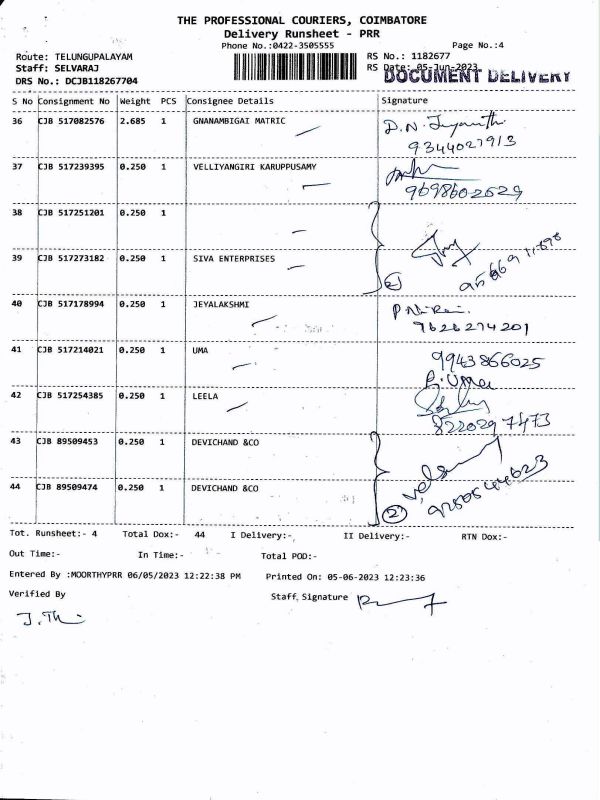 THE PROFESSIONAL COURIERS, COIMBATORE
Delivery Runsheet - PRR
Phone No.:0422-3505555 Page No.:4
Route: TELUNGUPALAYAM RS No.: 1182677
Staff: SELVARAJ RS Date: 05-Jun-2023
DOCUMENT DELIVERY
DRS No.: DCJB118267704
S No Consignment No Weight PCS Consignee Details Signature
36 CJB 517082576 2.685 1 GNANAMBIGAI MATRIC
9344027913
37 CJB 517239395 0.250 1 VELLIYANGIRI KARUPPUSAMY
9698602629
38 CJB 517251201 0.250 1
39 CJB 517273182 0.250 1 SIVA ENTERPRISES
2
40 CJB 517178994 0.250 1 JEYALAKSHMI
9626274201
41 CJB 517214021 0.250 1 UMA
9943866025
B. Uma
42 CJB 517254385 0.250 1 LEELA
8220297473
43 CJB 89509453 0.250 1 DEVICHAND &CO
44 CJB 89509474 0.250 1 DEVICHAND &CO
2
Tot. Runsheet:- 4 Total Dox:- 44 I Delivery:- II Delivery:- RTN Dox:-
Out Time:- In Time:- Total POD:-
Entered By :MOORTHYPRR 06/05/2023 12:22:38 PM Printed On: 05-06-2023 12:23:36
Verified By Staff, Signature